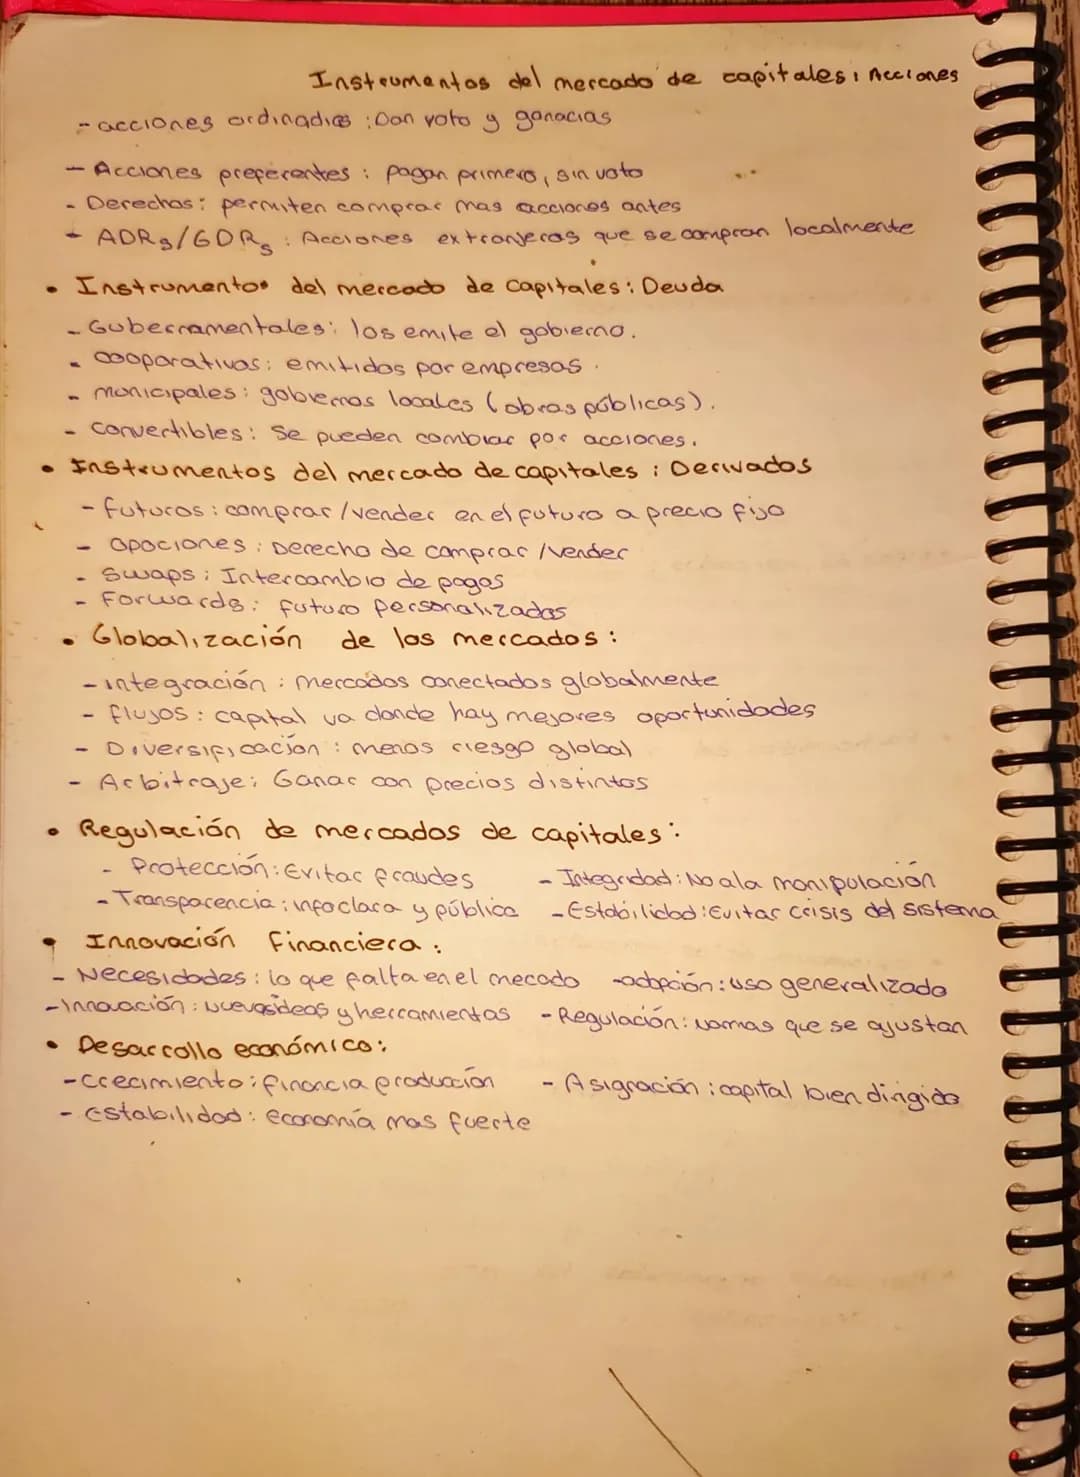 Instrumentos del mercado de capitales: Acciones
- acciones ordinadias : Dan voto y ganacias
- Acciones preferentes : pagan primero, sin voto
- Derechos: permiten comprar mas acciones antes
- ADRs/GDRs : Acciones extranjeras que se compran localmente
• Instrumentos del mercado de capitales: Deuda
- Guberramentales: los emite el gobierno.
- cooporativas: emitidos por empresas.
- municipales: gobiernos locales (obras públicas).
- convertibles: Se pueden combiar por acciones.
• Instrumentos del mercado de capitales : Derivados
- futuros : comprar/vender en el futuro a precio fijo
- Opociones : Derecho de comprar /vender
- Swaps : Intercambio de pagos
- Forwards: futuro personalizados
• Globalización de los mercados :
- integración : mercados conectados globalmente
- flujos : capital va donde hay mejores oportunidades
- Diversificación : menos riesgo global
- Arbitraje: Ganar con precios distintos
• Regulación de mercados de capitales:
- Protección: Evitar fraudes - Integridad: No a la manipulación
- Transparencia: info clara y pública - Estabilidad: Evitar crisis del sistema
• Innovación Financiera :
- Necesidades: lo que falta en el mecado - adopción: uso generalizado
- Innovación : nuevas ideas y herramientas - Regulación: normas que se ajustan
• Desarrollo económico:
- crecimiento: financia producción - Asigración : capital bien dirigido
- Estabilidad: economía mas fuerte